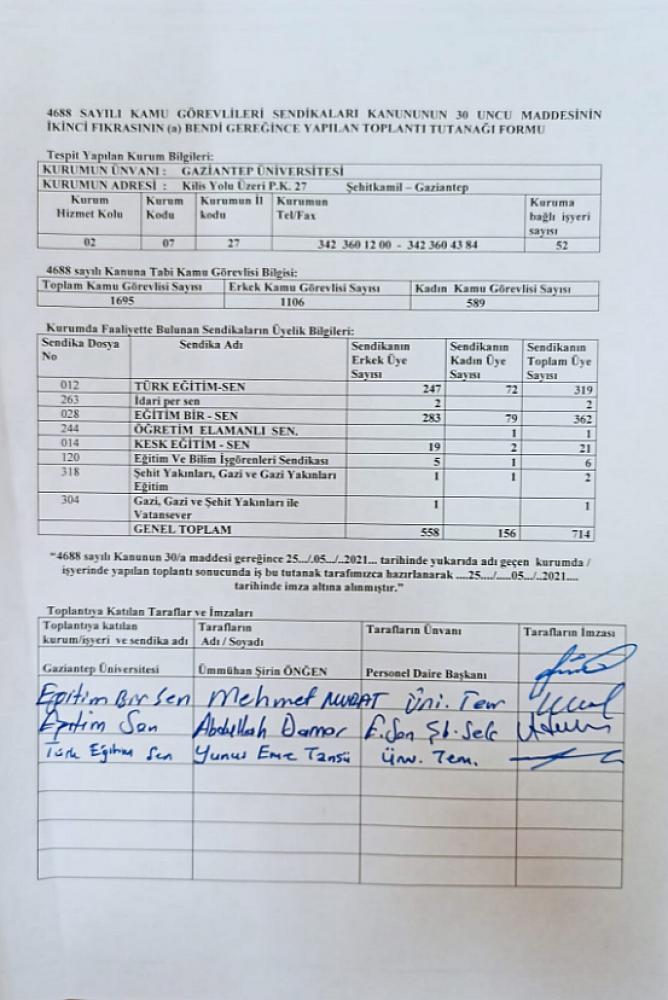 4688 SAYILI KAMU GÖREVLİLERİ SENDİKALARI KANUNUNUN 30 UNCU MADDESİNİN
İKİNCİ FIKRASININ (a) BENDİ GEREĞİNCE YAPILAN TOPLANTI TUTANAĞI FORMU
Tespit Yapılan Kurum Bilgileri:
KURUMUN ÜNVANI : GAZİANTEP ÜNİVERSİTESİ
KURUMUN ADRESİ : Kilis Yolu Üzeri P.K. 27 Şehitkamil – Gaziantep
Kurum Hizmet Kolu Kurum Kodu Kurumun İl kodu Kurumun Tel/Fax Kuruma bağlı işyeri sayısı
02 07 27 342 360 12 00 - 342 360 43 84 52
4688 sayılı Kanuna Tabi Kamu Görevlisi Bilgisi:
Toplam Kamu Görevlisi Sayısı Erkek Kamu Görevlisi Sayısı Kadın Kamu Görevlisi Sayısı
1695 1106 589
Kurumda Faaliyette Bulunan Sendikaların Üyelik Bilgileri:
Sendika Dosya No Sendika Adı Sendikanın Erkek Üye Sayısı Sendikanın Kadın Üye Sayısı Sendikanın Toplam Üye Sayısı
012 TÜRK EĞİTİM-SEN 247 72 319
263 İdari per sen 2 2
028 EĞİTİM BİR - SEN 283 79 362
244 ÖĞRETİM ELAMANLI SEN. 1 1
014 KESK EĞİTİM - SEN 19 2 21
120 Eğitim Ve Bilim İşgörenleri Sendikası 5 1 6
318 Şehit Yakınları, Gazi ve Gazi Yakınları Eğitim 1 1 2
304 Gazi, Gazi ve Şehit Yakınları ile Vatansever 1 1
GENEL TOPLAM 558 156 714
“4688 sayılı Kanunun 30/a maddesi gereğince 25.../.05.../..2021... tarihinde yukarıda adı geçen kurumda /
işyerinde yapılan toplantı sonucunda iş bu tutanak tarafımızca hazırlanarak ....25..../.....05.../..2021....
tarihinde imza altına alınmıştır.”
Toplantıya Katılan Taraflar ve İmzaları
Toplantıya katılan kurum/işyeri ve sendika adı Tarafların Adı / Soyadı Tarafların Ünvanı Tarafların İmzası
Gaziantep Üniversitesi Ümmühan Şirin ÖNĞEN Personel Daire Başkanı
Eğitim Bir Sen Mehmet MURAT Üni. Tem
Eğitim Sen Abdullah Damar E. Sen Şb. Sek
Türk Eğitim Sen Yunus Emre Tansü Üniv. Tem.